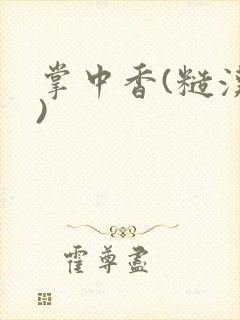 掌中香(糙汉
)
霍尊盡